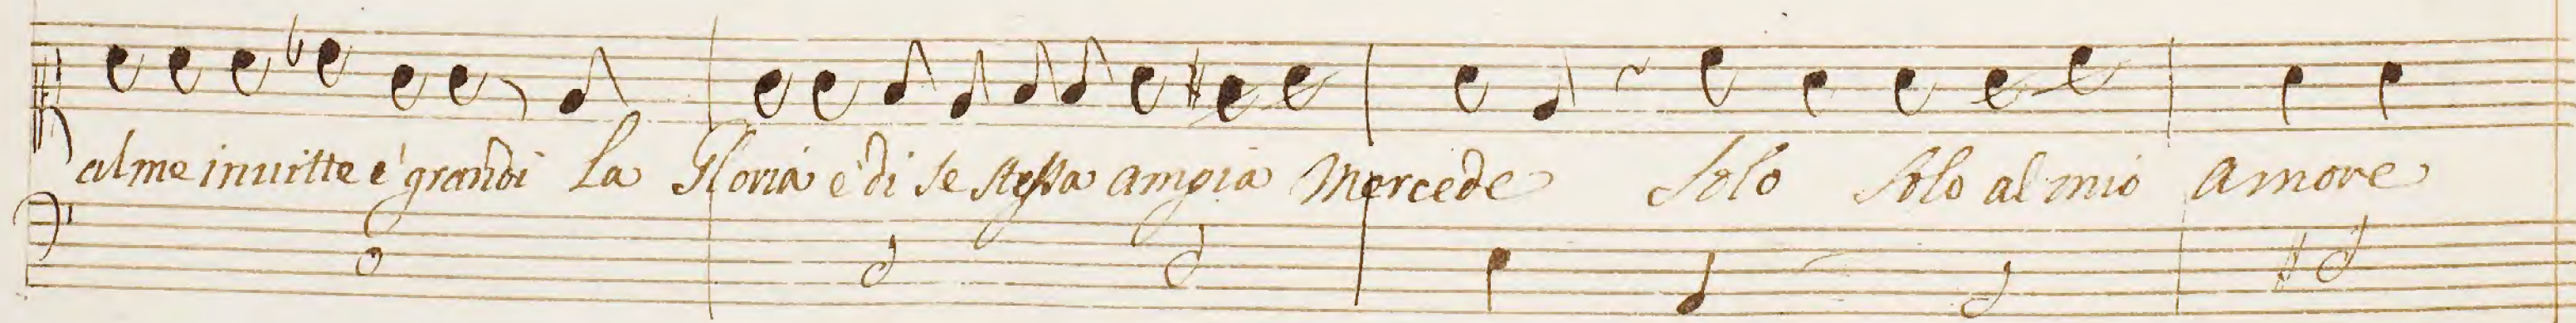 alme inuitte e' grandi La Gloria e' di se stessa ampia Mercede Solo Solo al mio amore